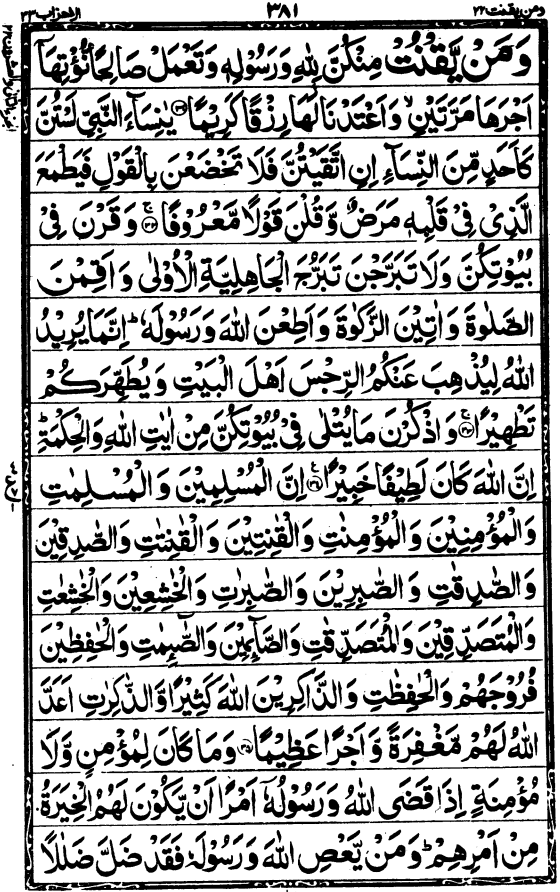 ومن يقنت ٢٢ ٣٨١ الاحزاب ٣٣
وَمَنْ يَّقْنُتْ مِنْكُنَّ لِلّٰهِ وَرَسُوْلِهٖ وَتَعْمَلْ صَالِحًا نُّؤْتِهَآ
اَجْرَهَا مَرَّتَيْنِ ۙ وَاَعْتَدْنَا لَهَا رِزْقًا كَرِيْمًا ﴿٣١﴾ يٰنِسَآءَ النَّبِيِّ لَسْتُنَّ
كَاَحَدٍ مِّنَ النِّسَآءِ اِنِ اتَّقَيْتُنَّ فَلَا تَخْضَعْنَ بِالْقَوْلِ فَيَطْمَعَ
الَّذِيْ فِيْ قَلْبِهٖ مَرَضٌ وَّقُلْنَ قَوْلًا مَّعْرُوْفًا ﴿٣٢﴾ وَقَرْنَ فِيْ
بُيُوْتِكُنَّ وَلَا تَبَرَّجْنَ تَبَرُّجَ الْجَاهِلِيَّةِ الْاُوْلٰى وَاَقِمْنَ
الصَّلٰوةَ وَاٰتِيْنَ الزَّكٰوةَ وَاَطِعْنَ اللّٰهَ وَرَسُوْلَهٗ ؕ اِنَّمَا يُرِيْدُ
اللّٰهُ لِيُذْهِبَ عَنْكُمُ الرِّجْسَ اَهْلَ الْبَيْتِ وَيُطَهِّرَكُمْ
تَطْهِيْرًا ﴿٣٣﴾ وَاذْكُرْنَ مَا يُتْلٰى فِيْ بُيُوْتِكُنَّ مِنْ اٰيٰتِ اللّٰهِ وَالْحِكْمَةِ ؕ
اِنَّ اللّٰهَ كَانَ لَطِيْفًا خَبِيْرًا ﴿٣٤﴾ اِنَّ الْمُسْلِمِيْنَ وَالْمُسْلِمٰتِ
وَالْمُؤْمِنِيْنَ وَالْمُؤْمِنٰتِ وَالْقٰنِتِيْنَ وَالْقٰنِتٰتِ وَالصّٰدِقِيْنَ
وَالصّٰدِقٰتِ وَالصّٰبِرِيْنَ وَالصّٰبِرٰتِ وَالْخٰشِعِيْنَ وَالْخٰشِعٰتِ
وَالْمُتَصَدِّقِيْنَ وَالْمُتَصَدِّقٰتِ وَالصَّآئِمِيْنَ وَالصّٰٓئِمٰتِ وَالْحٰفِظِيْنَ
فُرُوْجَهُمْ وَالْحٰفِظٰتِ وَالذَّاكِرِيْنَ اللّٰهَ كَثِيْرًا وَّالذّٰكِرٰتِ اَعَدَّ
اللّٰهُ لَهُمْ مَّغْفِرَةً وَّاَجْرًا عَظِيْمًا ﴿٣٥﴾ وَمَا كَانَ لِمُؤْمِنٍ وَّلَا
مُؤْمِنَةٍ اِذَا قَضَى اللّٰهُ وَرَسُوْلُهٗٓ اَمْرًا اَنْ يَّكُوْنَ لَهُمُ الْخِيَرَةُ
مِنْ اَمْرِهِمْ ؕ وَمَنْ يَّعْصِ اللّٰهَ وَرَسُوْلَهٗ فَقَدْ ضَلَّ ضَلٰلًا